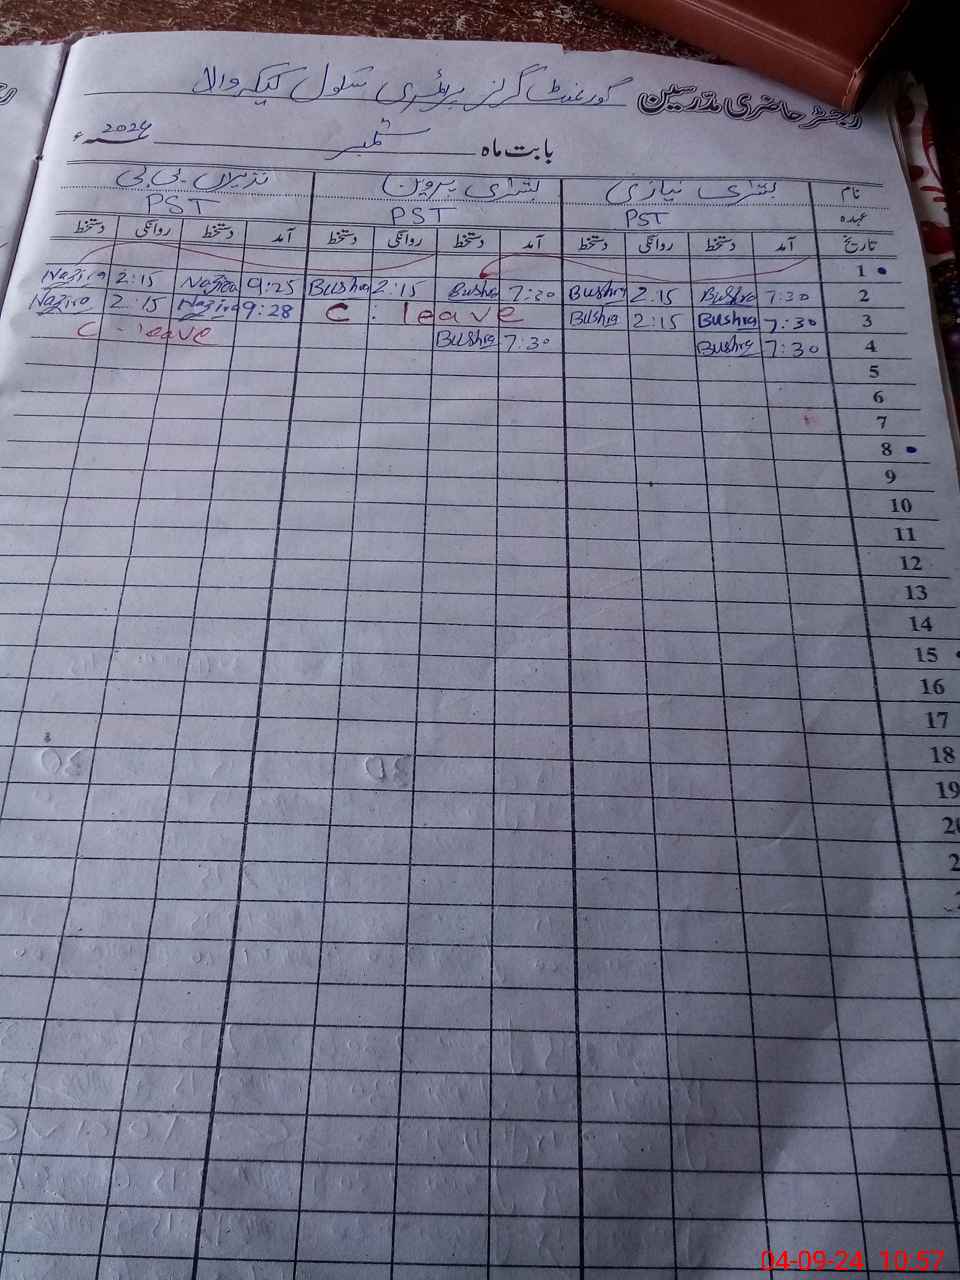 رجسٹر حاضری مدرسین گورنمنٹ گرلز پرائمری سکول کیکر والا
بابت ماہ ستمبر 2024ء
نام بشرای نیازی بشرای پروین نذیراں بی بی
عہدہ PST PST PST
تاریخ آمد دستخط روانگی دستخط آمد دستخط روانگی دستخط آمد دستخط روانگی دستخط
1
2 7:30 Bushra 2:15 Bushra 7:30 Bushra 2:15 Bushra 9:25 Nazira 2:15 Nazira
3 7:30 Bushra 2:15 Bushra C. leave 9:28 Nazira 2:15 Nazira
4 7:30 Bushra 7:30 Bushra C. leave
5
6
7
8
9
10
11
12
13
14
15
16
17
18
19
04-09-24 10:57